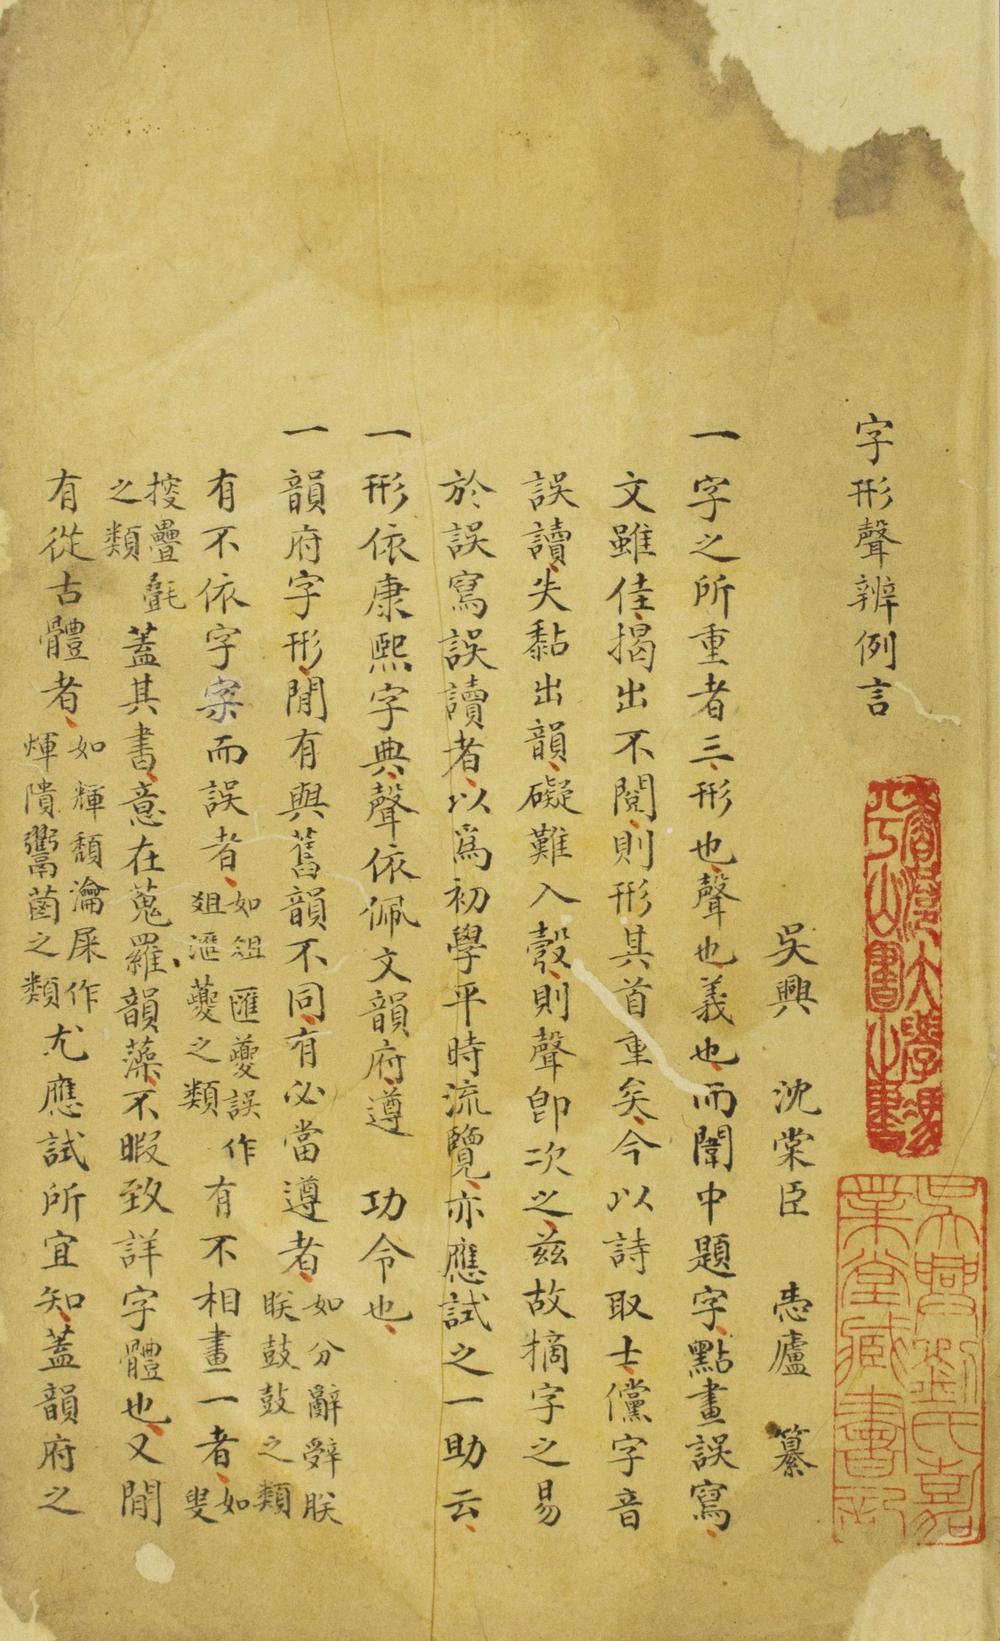 字形聲辨例言
吳興　沈棠臣　恚廬　纂
一字之所重者三形也聲也義也而闈中題字點畫誤寫
文雖佳揭出不閱則形其首重矣今以詩取士儻字音
誤讀失黏出韻礙難入彀則聲即次之茲故摘字之易
於誤寫誤讀者以爲初學平時流覽亦應試之一助云
一形依康熙字典聲依佩文韻府遵　功令也
一韻府字形間有與舊韻不同有必當遵者如分辭辤朕
眹鼓鼔之類
有不依字案而誤者如俎匯夔誤作
爼滙䕫之類有不相畫一者如叟
㨘疊氎
之類蓋其書意在蒐羅韻藻不暇致詳字體也又間
有從古體者如輝頮瀹屎作
煇靧鬻𦳊之類尤應試所宜知蓋韻府之
吳興劉氏嘉
業堂藏書記